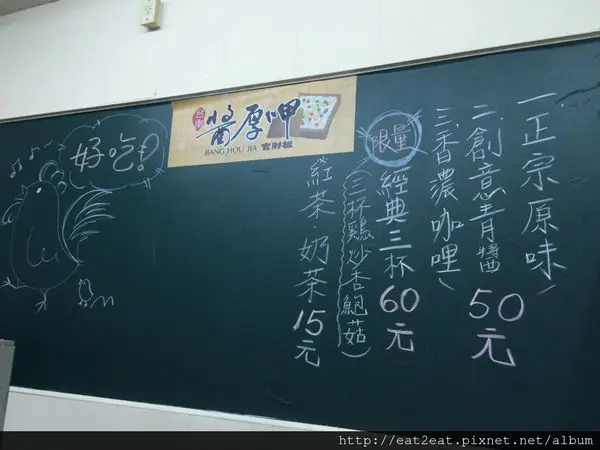 一、正宗原味
二、創意青醬
三、香濃咖哩
50元
限量
經典三杯 60元
(三杯雞炒杏鮑菇)
紅茶·奶茶 15元
台南
醬厚呷
JIANG HOU JIA 官財板
好吃!
http://eat2eat.pixnet.net/album